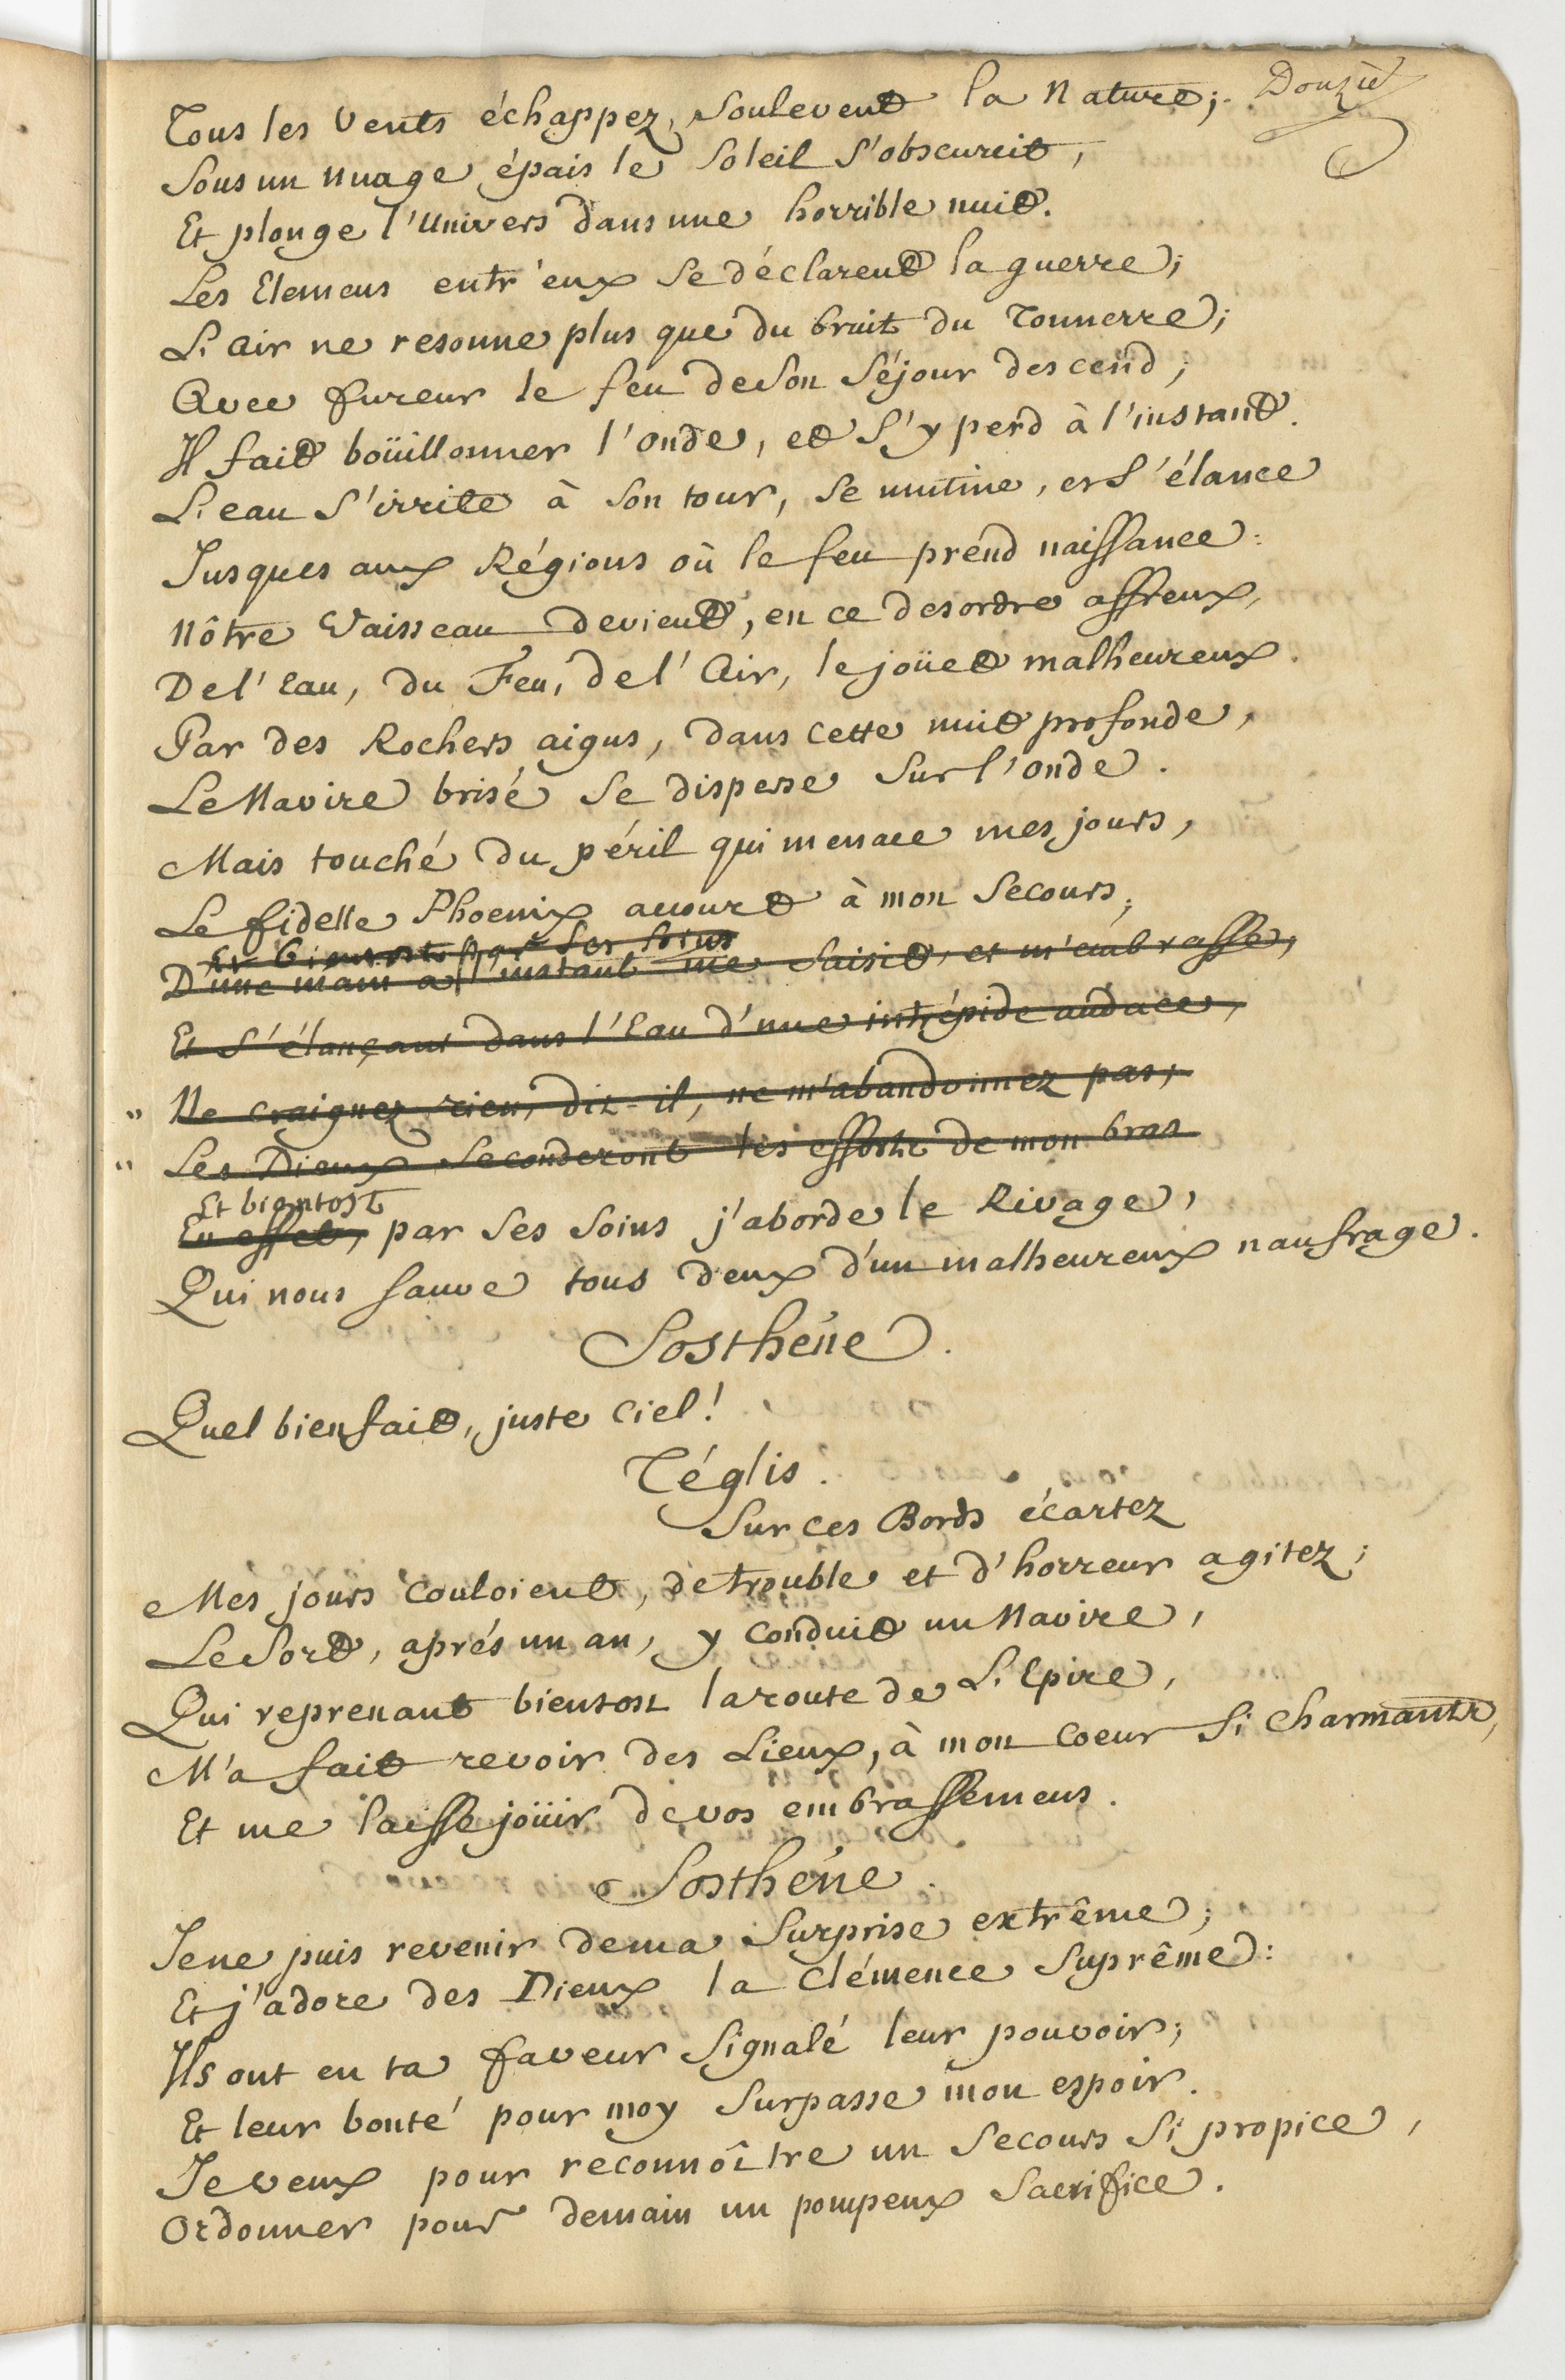 Douzie
Tous les Vents échappez, soulevent la Nature;
Sous un nuage épais le Soleil s'obscurcit,
Et plonge l'Univers dans une horrible nuit.
Les Elemens entr'eux se déclarent la guerre;
L'air ne resonne plus que du bruit du Tonnerre;
Avec fureur le feu de son séjour descend;
Il fait boüillonner l'onde, et s'y perd à l'instant.
L'eau s'irrite à son tour, se mutine, et s'élance
Jusques aux Régions où le feu prend naissance:
Nôtre Vaisseau devient, en ce desordre affreux,
De l'Eau, du Feu, de l'Air, le joüet malheureux.
Par des Rochers aigus, dans cette nuit profonde,
Le Navire brisé se disperse sur l'onde.
Mais touché du péril qui menace mes jours,
Le fidelle Phoenix accourt à mon secours;
Et bientost par ses soins
D'une main à l'instant me saisit, et m'embrasse,
Et s'élançant dans l'Eau d'une intrépide audace,
" Ne craignez rien, dit-il, ne m'abandonnez pas,
" Les Dieux seconderont les efforts de mon bras
Et bientost
En effet, par ses soins j'aborde le Rivage,
Qui nous sauve tous deux d'un malheureux naufrage.
Sosthéne.
Quel bienfait, juste Ciel!
Téglis.
Sur ces Bords écartez
Mes jours couloient, de trouble et d'horreur agitez;
Le Sort, aprés un an, y conduit un Navire,
Qui reprenant bientost la route de L'Epire,
M'a fait revoir des Lieux, à mon coeur si charmants,
Et me laisse joüir de vos embrassemens.
Sosthéne.
Je ne puis revenir de ma surprise extrême;
Et j'adore des Dieux la Clémence suprême:
Ils ont en ta faveur signalé leur pouvoir;
Et leur bonté pour moy surpasse mon espoir.
Je veux pour reconnoître un secours si propice,
Ordonner pour demain un pompeux Sacrifice.